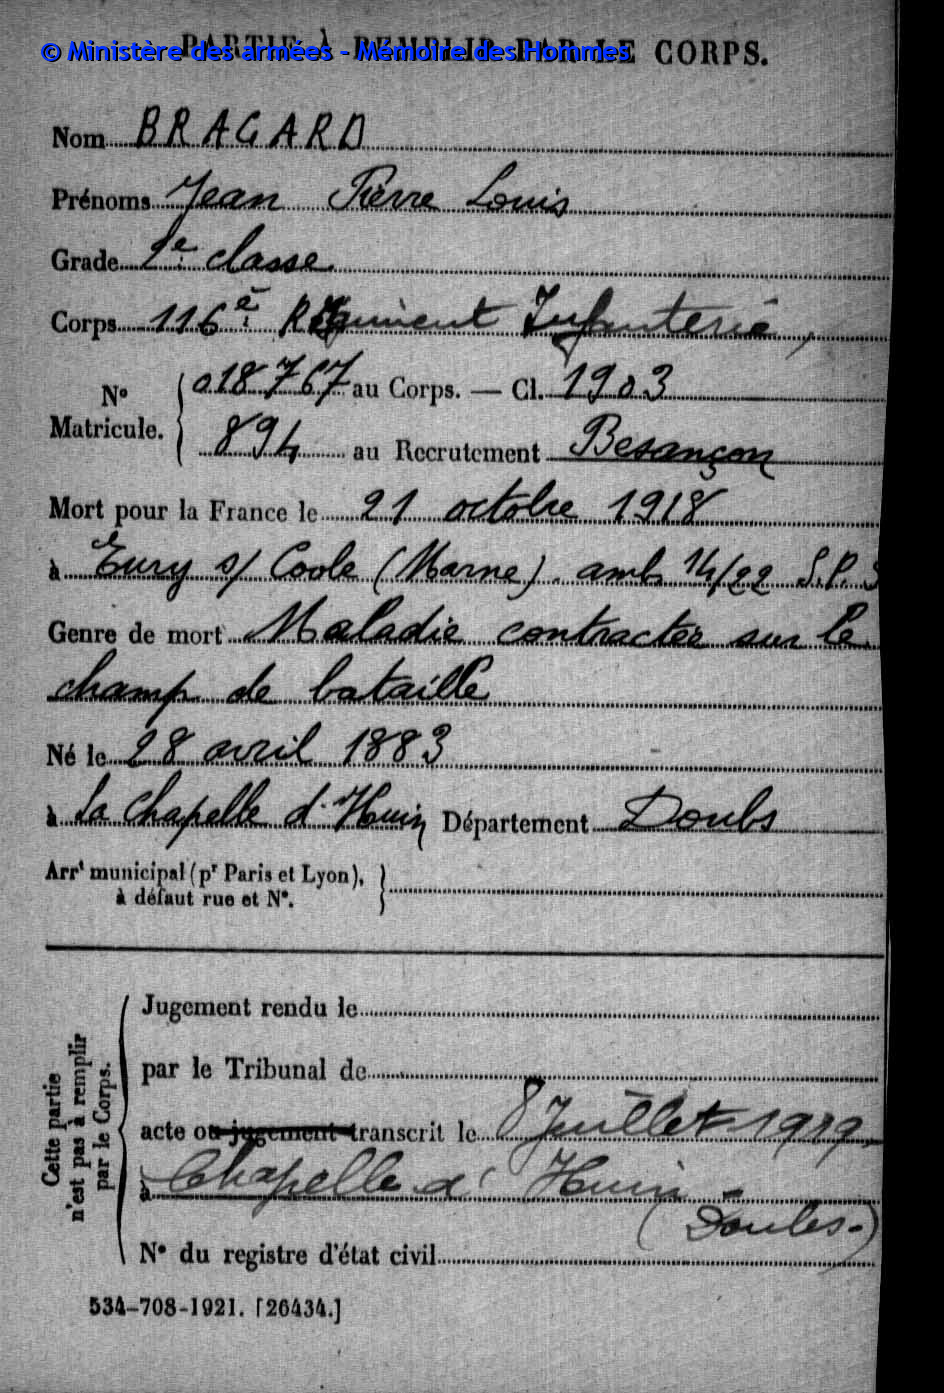 PARTIE À REMPLIR PAR LE CORPS.
© Ministère des armées - Mémoire des Hommes
Nom BRAGARD
Prénoms Jean Pierre Louis
Grade 2e classe
Corps 116e Régiment Infanterie,
N° Matricule. { 018767 au Corps. — Cl. 1903
894 au Recrutement Besançon
Mort pour la France le 21 octobre 1918
à Eury s/ Coole (Marne). amb 14/22 S.P.
Genre de mort Maladie contractée sur le
champ de bataille
Né le 28 avril 1883
à La Chapelle d'Huin Département Doubs
Arrt municipal (pr Paris et Lyon), }
à défaut rue et N°.
Cette partie n'est pas à remplir par le Corps.
Jugement rendu le
par le Tribunal de
acte ou jugement transcrit le 8 Juillet 1919,
à Chapelle d'Huin -
(Doubs.)
N° du registre d'état civil
534-708-1921. [26434.]